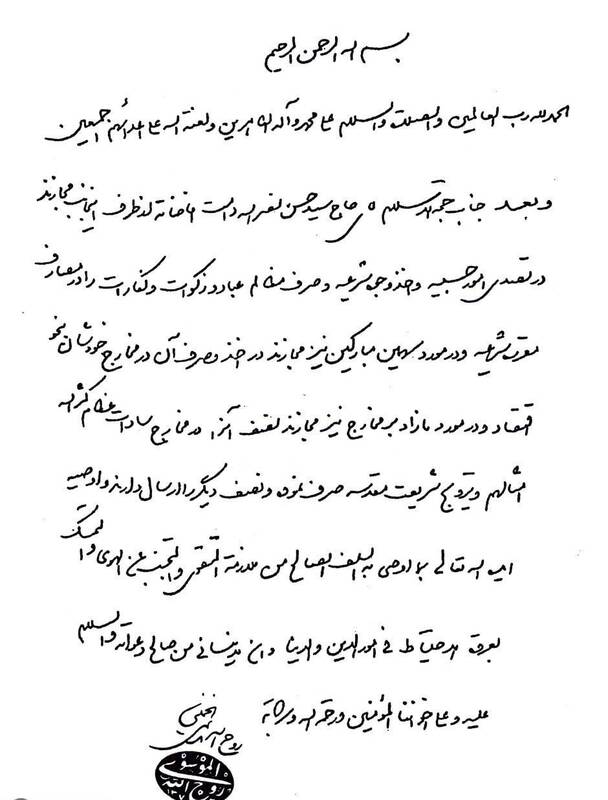 بسم الله الرحمن الرحیم
الحمد لله رب العالمین والصلوة والسلام علی محمد وآله الطاهرین ولعنة الله علی اعدائهم اجمعین
وبعد جناب حجة الاسلام آقای حاج سید حسن نصرالله دامت افاضاته از طرف اینجانب مجازند
در تصدی امور حسبیه واخذ وجوه شرعیه وصرف مظالم عباد وزکوات وکفارات را در مصارف
مقرره شرعیه ودر مورد سهمین مبارکین نیز مجازند در اخذ وصرف آن در مخارج خودشان بنحو
اقتصاد ودر مورد مازاد بر مخارج نیز مجازند نصف آنرا در مخارج سادات عظام کثر الله
امثالهم وترویج شریعت مقدسه صرف نموده ونصف دیگر را ارسال دارند واوصیه
ایده الله تعالی بما اوصی به السلف الصالح من ملازمة التقوی والتجنب عن الهوی والتمسک
بعروة الاحتیاط فی امور الدین والدنیا وان لاینسانی من صالح دعواته والسلام
علیه وعلی اخواننا المؤمنین ورحمة الله وبرکاته
روح الله الموسوی الخمینی
الموسوی
روح الله